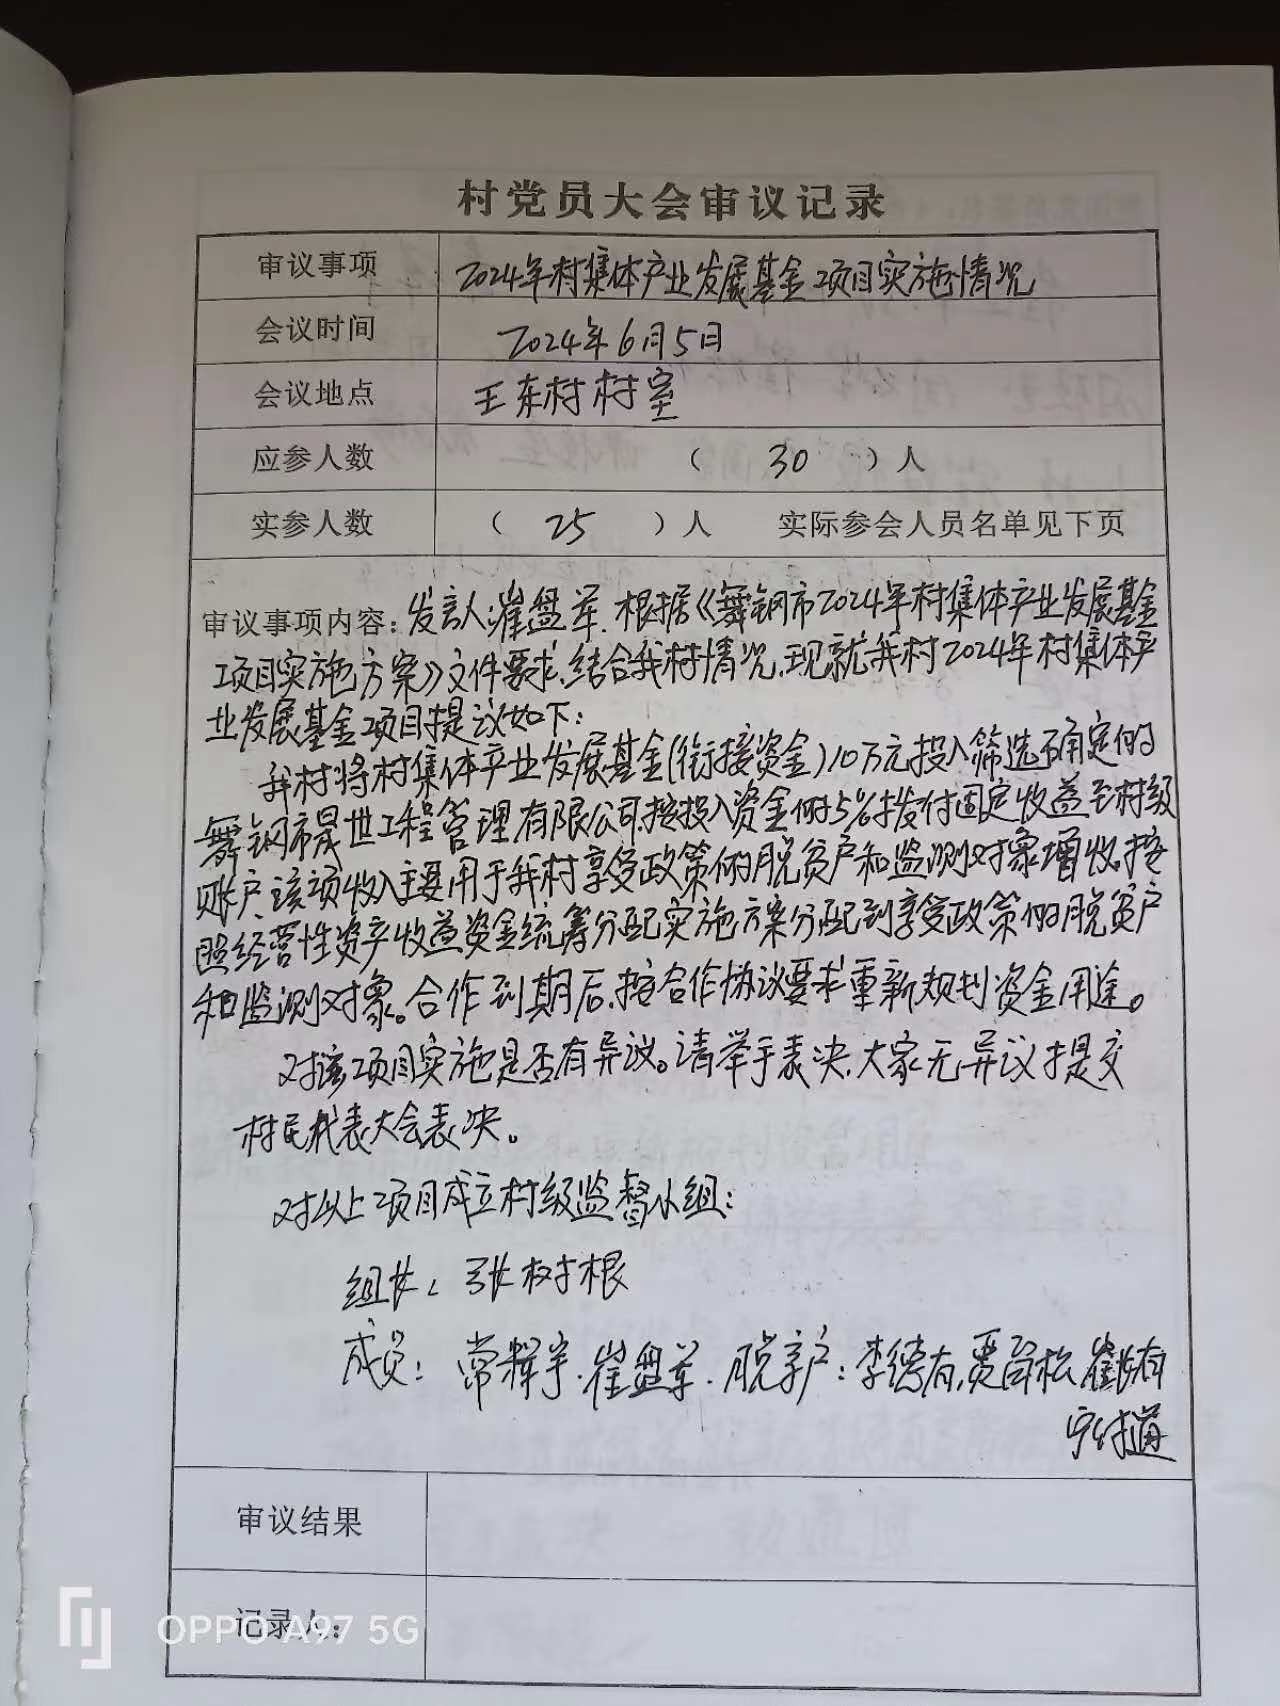 村党员大会审议记录
审议事项 2024年村集体产业发展基金项目实施情况
会议时间 2024年6月5日
会议地点 王东村村室
应参人数 （ 30 ）人
实参人数 （ 25 ）人 实际参会人员名单见下页
审议事项内容：发言人：崔盘军.根据《舞钢市2024年村集体产业发展基金
项目实施方案》文件要求,结合我村情况,现就我村2024年村集体产
业发展基金项目提议如下：
我村将村集体产业发展基金(衔接资金)10万元投入筛选确定的
舞钢市晟世工程管理有限公司,按投入资金的5%拨付固定收益至村级
账户,该项收入主要用于我村享受政策的脱贫户和监测对象增收,按
照经营性资产收益资金统筹分配实施方案分配到享受政策的脱贫户
和监测对象。合作到期后,按合作协议要求重新规划资金用途。
对该项目实施是否有异议。请举手表决,大家无异议提交
村民代表大会表决。
对以上项目成立村级监督小组：
组长：张树根
成员：常辉宇.崔盘军.脱贫户：李德有,贾 松,崔长有
审议结果
记录人：
OPPO A97 5G